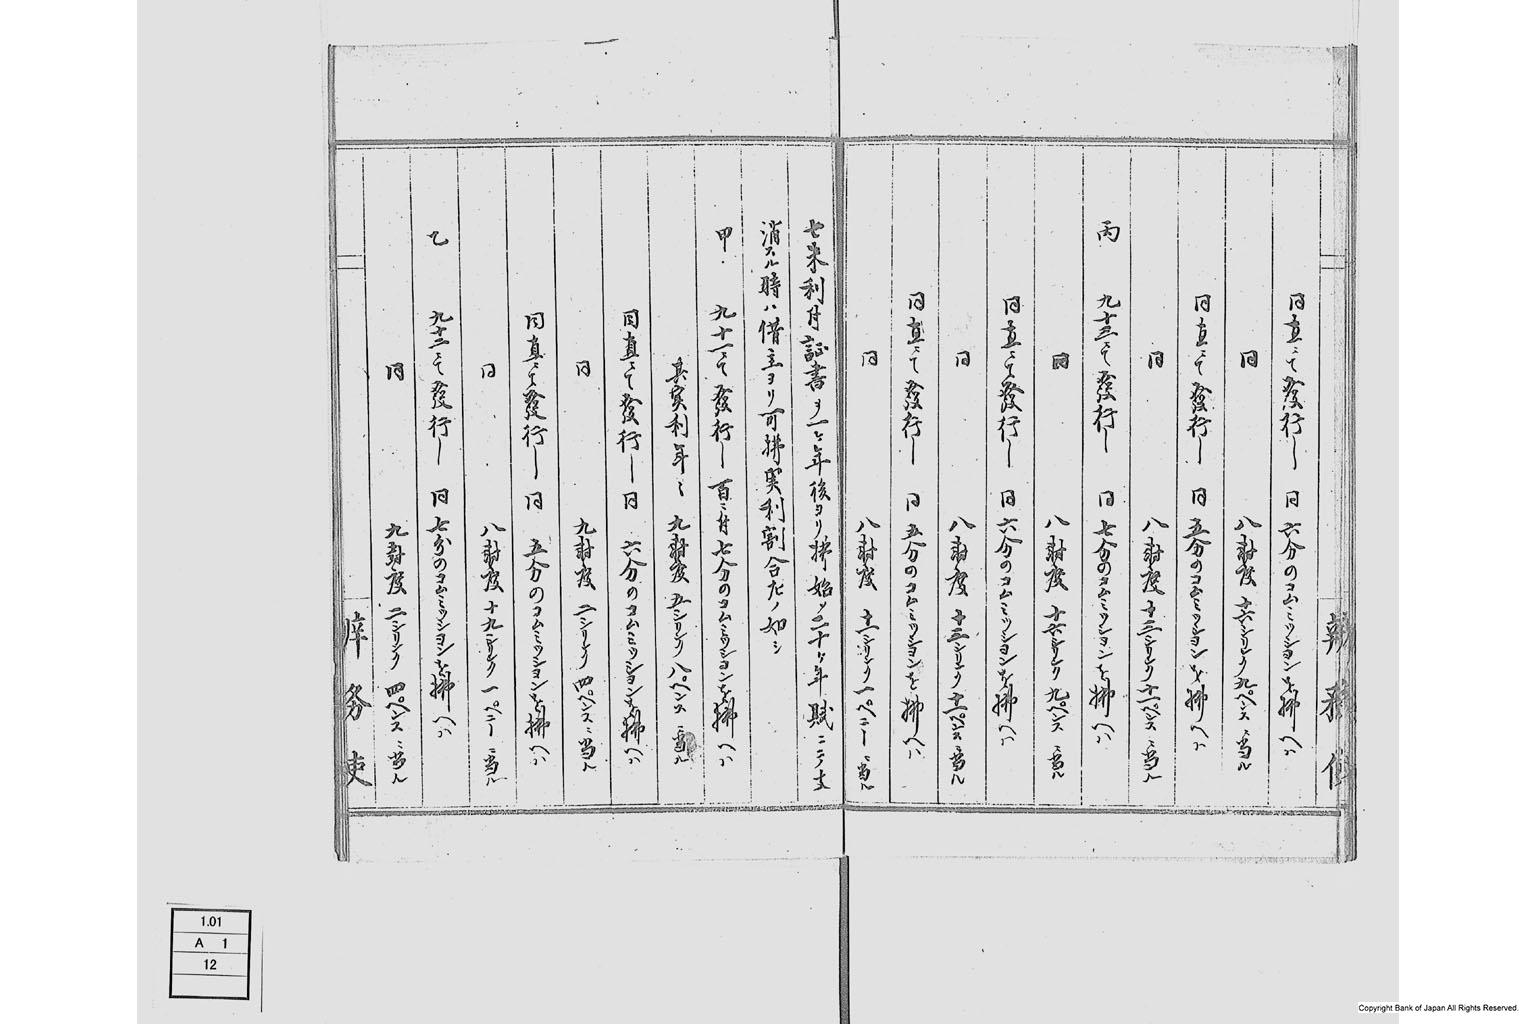 同直ニて發行し 同六分のコムミッションを拂へハ
同 八封度十六シリング九ペンスニ當ル
同直ニて發行し 同五分のコムミッションを拂へハ
同 八封度十三シリング十一ペンスニ當ル
丙 九十三ニて發行し 同七分のコムミッションを拂へハ
同 八封度十六シリング九ペンスニ當ル
同直ニて發行し 同六分のコムミッションを拂へハ
同 八封度十三シリング十一ペンスニ當ル
同直ニて發行し 同五分のコムミッションを拂へハ
同 八封度十一シリング一ペニーニ當ル
七朱利付証書ヲ一ヶ年後ヨリ拂始メ二十ヶ年賦ニテ支
消スル時ハ借主ヨリ可拂実利割合左ノ如シ
甲 九十一ニて發行し 百ニ付七分のコムミッションを拂へハ
其実利年ニ 九封度五シリング八ペンスニ當ル
同直ニて發行し 同六分のコムミッションを拂へハ
同 九封度二シリング四ペンスニ當ル
同直ニて發行し 同五分のコムミッションを拂へハ
同 八封度十九シリング一ペニーニ當ル
乙 九十二ニて發行し 同七分のコムミッションを拂へハ
同 九封度二シリング四ペンスニ當ル
1.01
A 1
12
Copyright Bank of Japan All Rights Reserved.